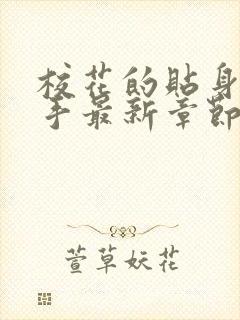 校花的貼身
手最新章節
萱草妖花